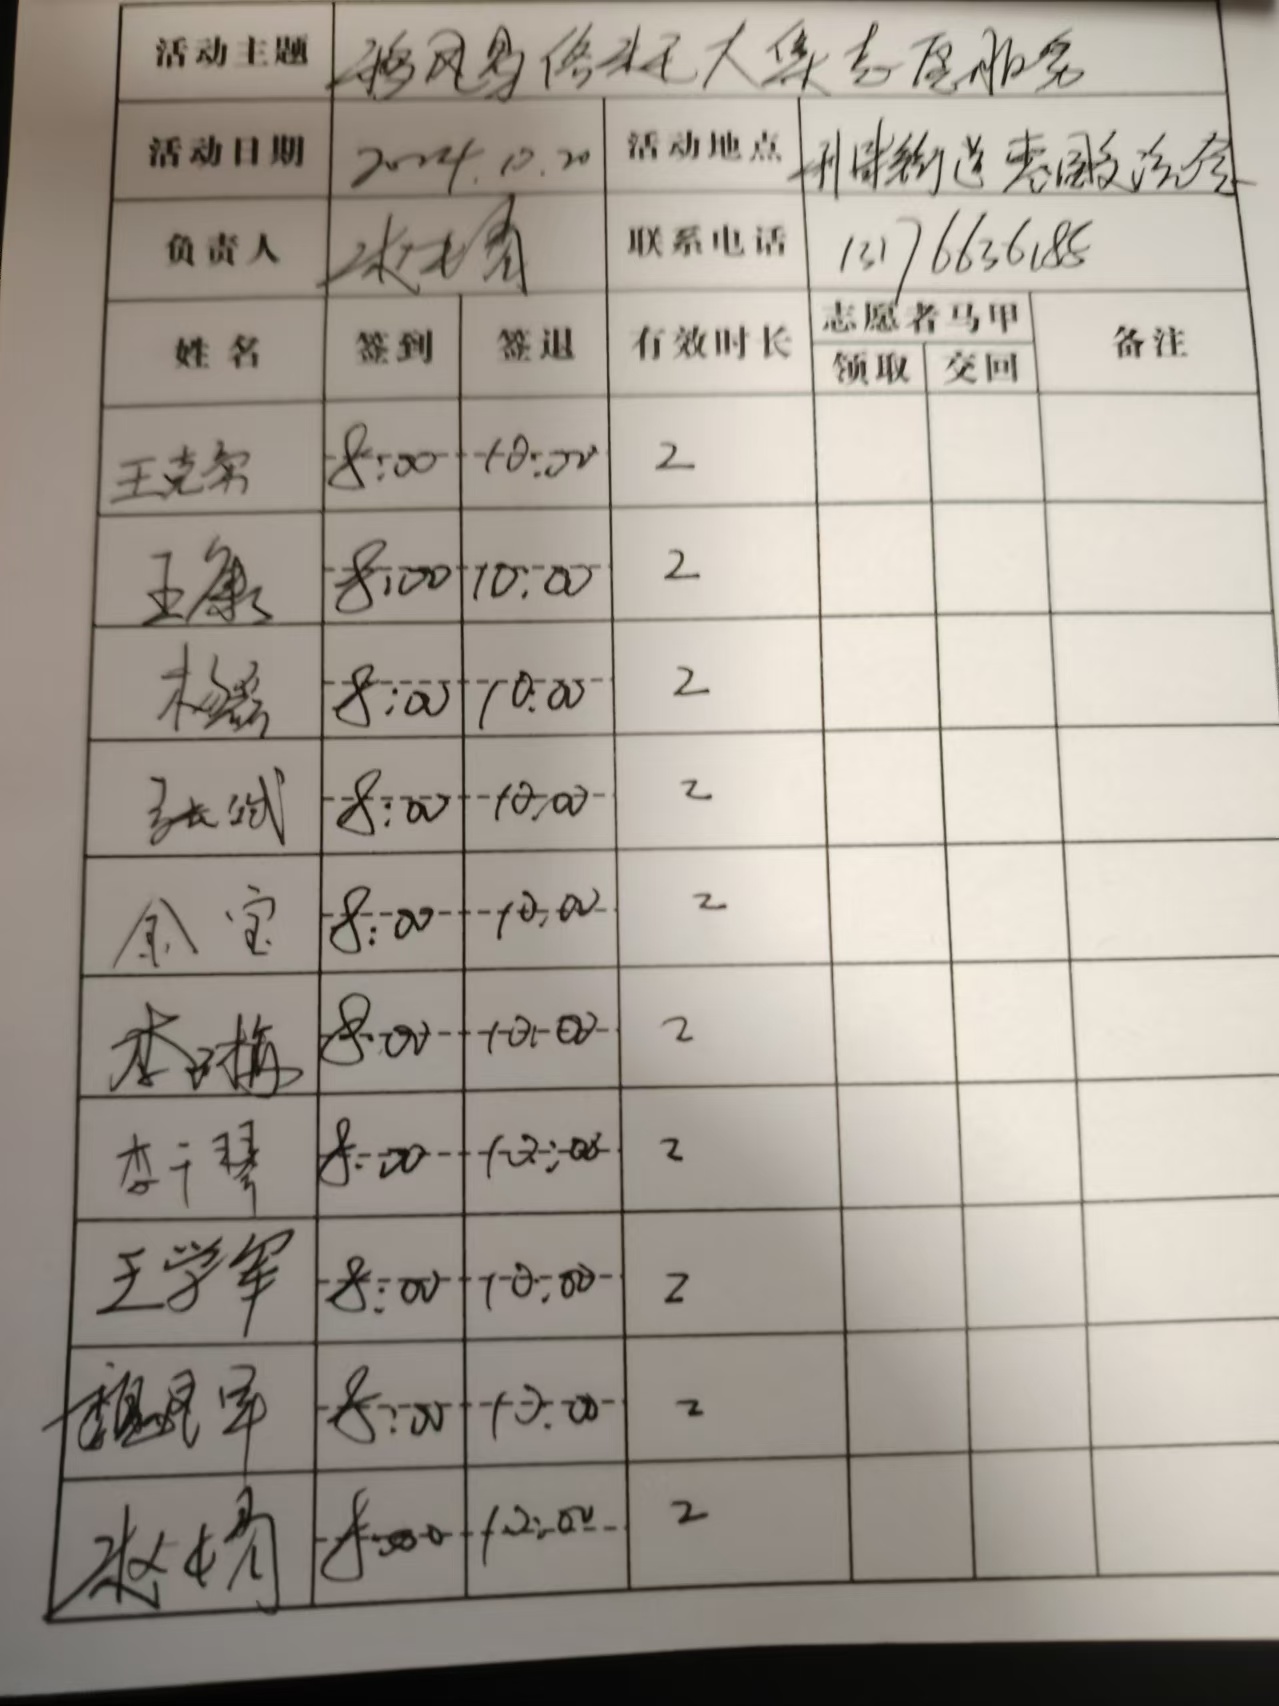 活动主题 移风易俗 大集志愿服务
活动日期 2024.10.20 活动地点 利津街道
负责人 联系电话 13176636185
姓名 签到 签退 有效时长 志愿者马甲 备注
领取 交回
王克 8:00 10:00 2
王康 8:00 10:00 2
杨 8:00 10:00 2
张 8:00 10:00 2
宝 8:00 10:00 2
李 梅 8:00 10:00 2
李千琴 8:00 10:00 2
王学军 8:00 10:00 2
魏民军 8:00 10:00 2
8:00 10:00 2